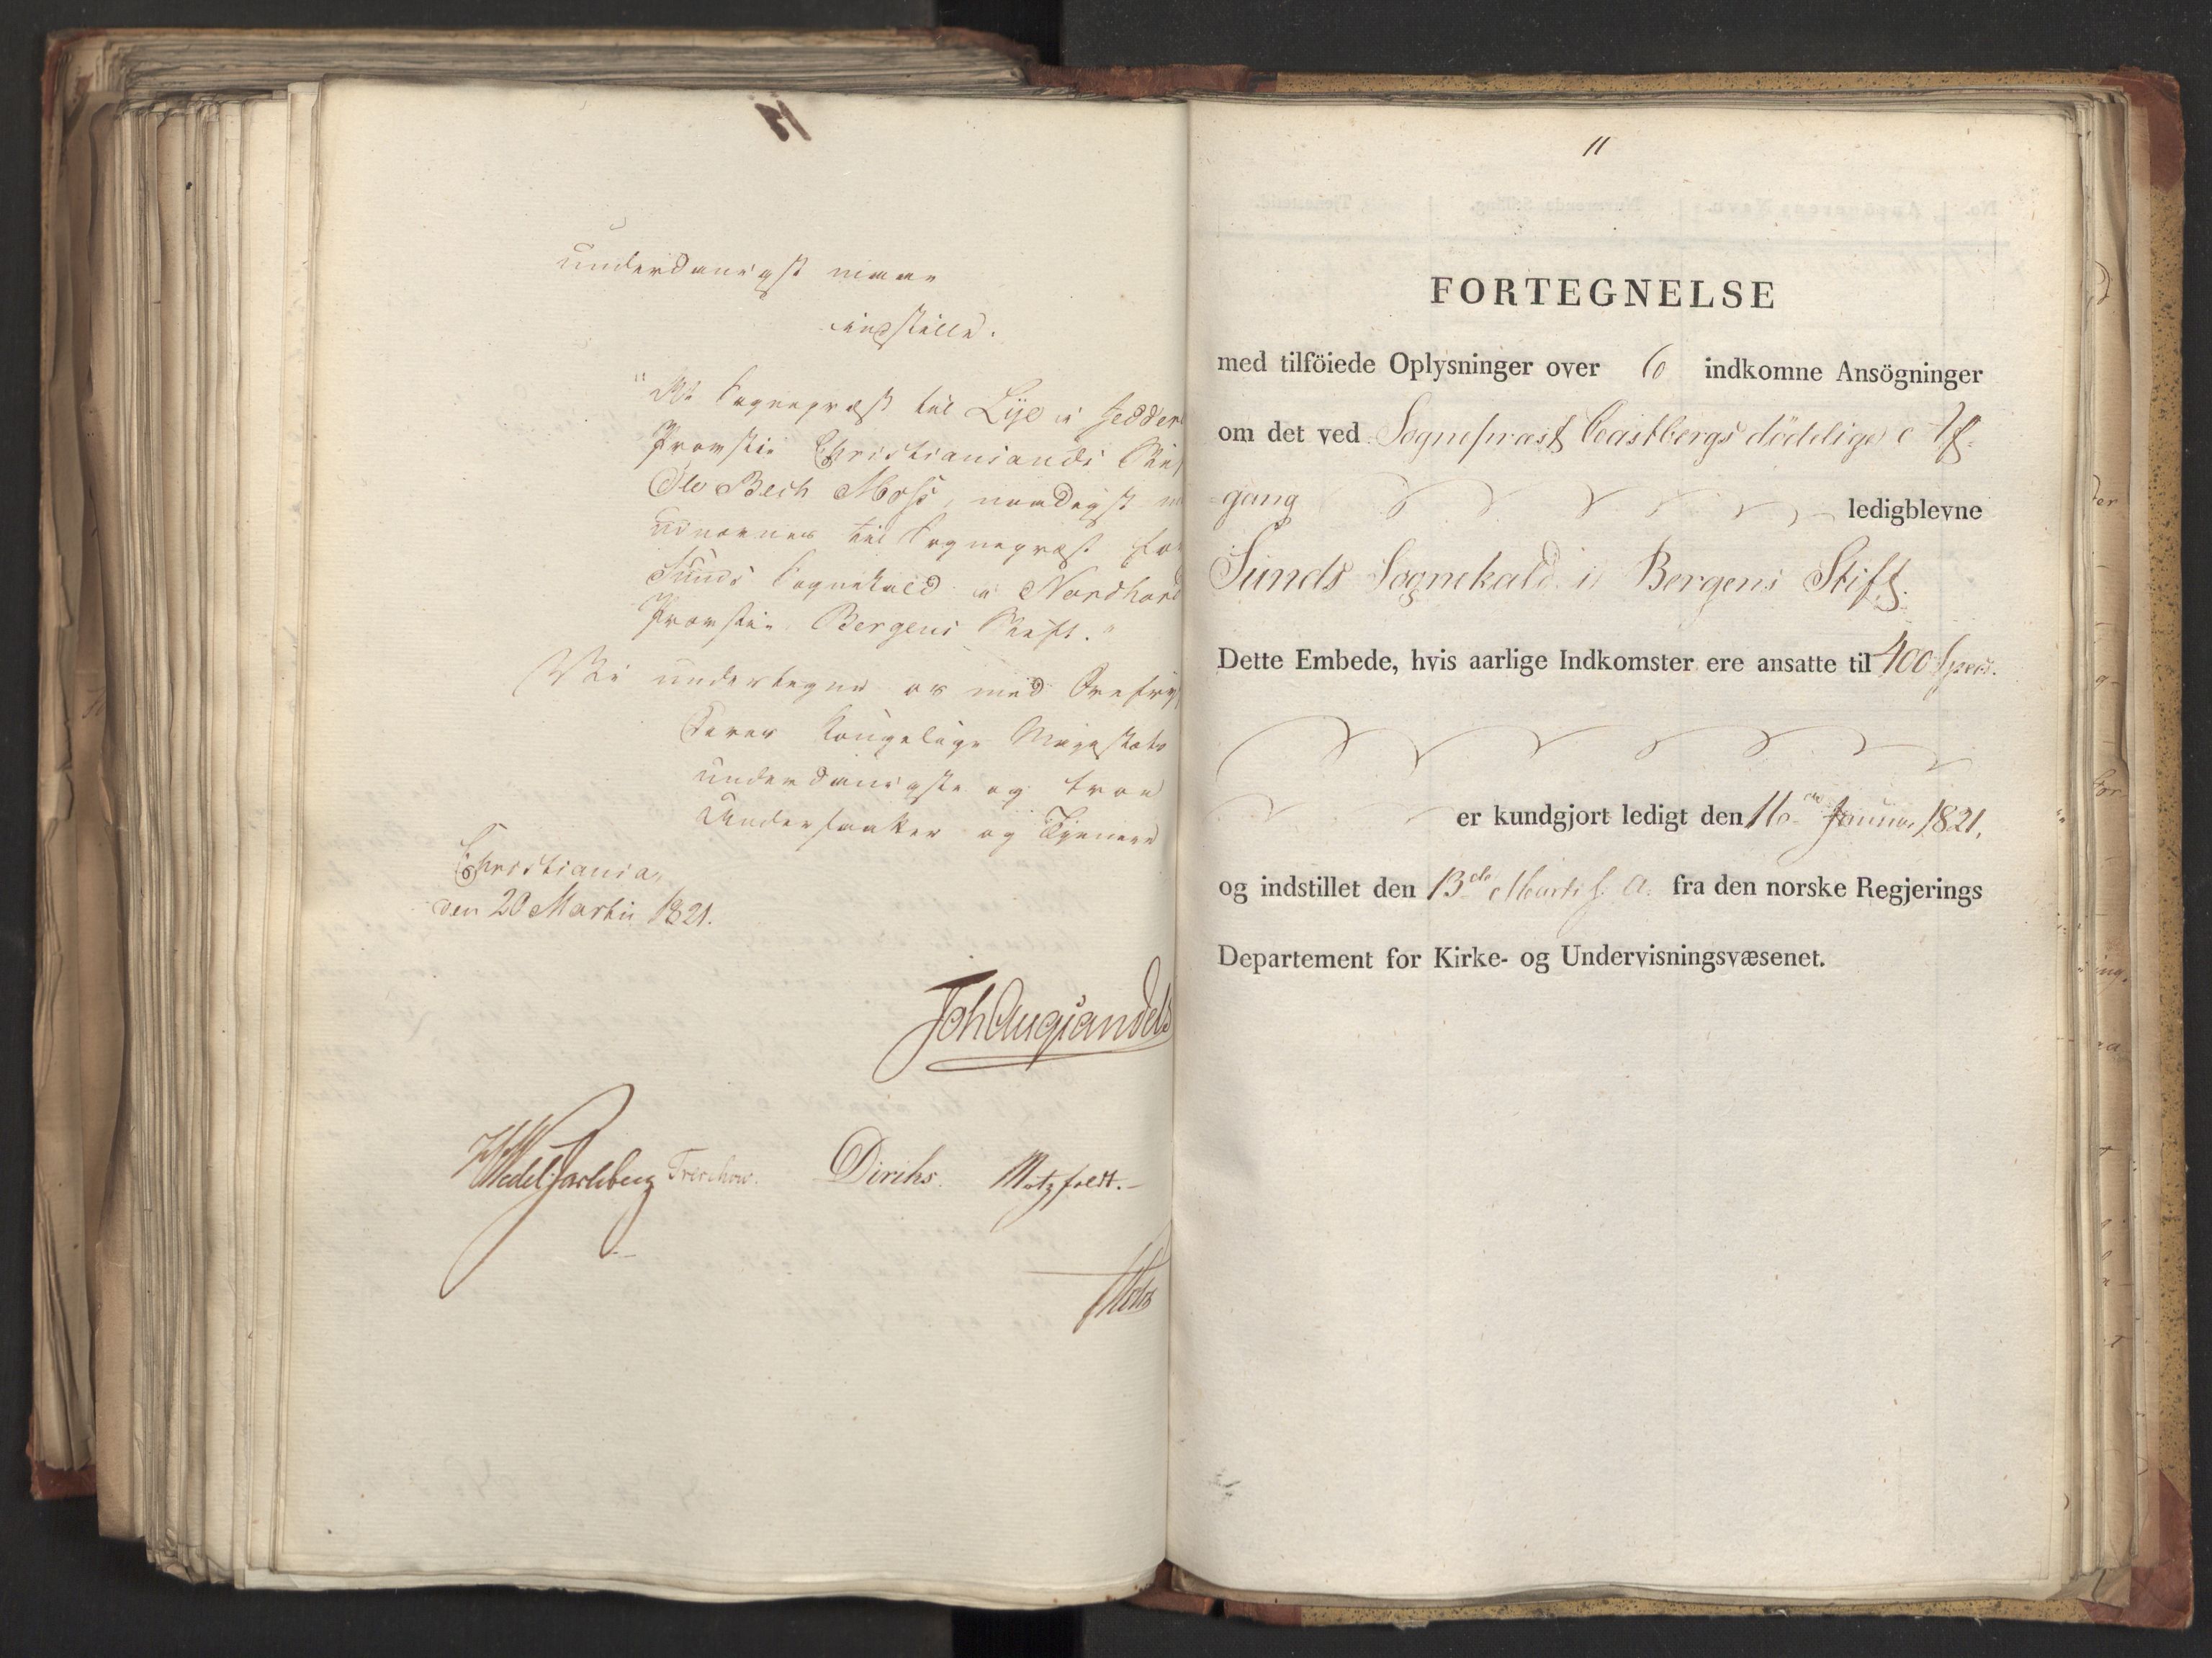 underdanigst maae
indstille:
"At Sognepræst til Lye i Jedder
Provstie Christiansands Stif
Ole Bech Moss, naadigst m
udnævnes til Sognepræst for
Sunds Sognekald i Nordhord
Provstie Bergens Stift."
Vi undertegne os med Ærefryg
Deres Kongelige Majestæts
underdanigste og troe
Undersaatter og Tjenere
Christiania,
den 20 Martii 1821.
Joh Aug Sandels
Wedel Jarlsberg Treschow. Diriks. Motzfeldt.-
11
FORTEGNELSE
med tilföiede Oplysninger over 6 indkomne Ansögninger
om det ved Sognepræst Castbergs dödelige Af-
gang ledigblevne
Sunds Sognekald i Bergens Stift.
Dette Embede, hvis aarlige Indkomster ere ansatte til 400 Spec.
er kundgjort ledigt den 16de Januar 1821,
og indstillet den 13de Marti s. A. fra den norske Regjerings
Departement for Kirke- og Undervisningsvæsenet.